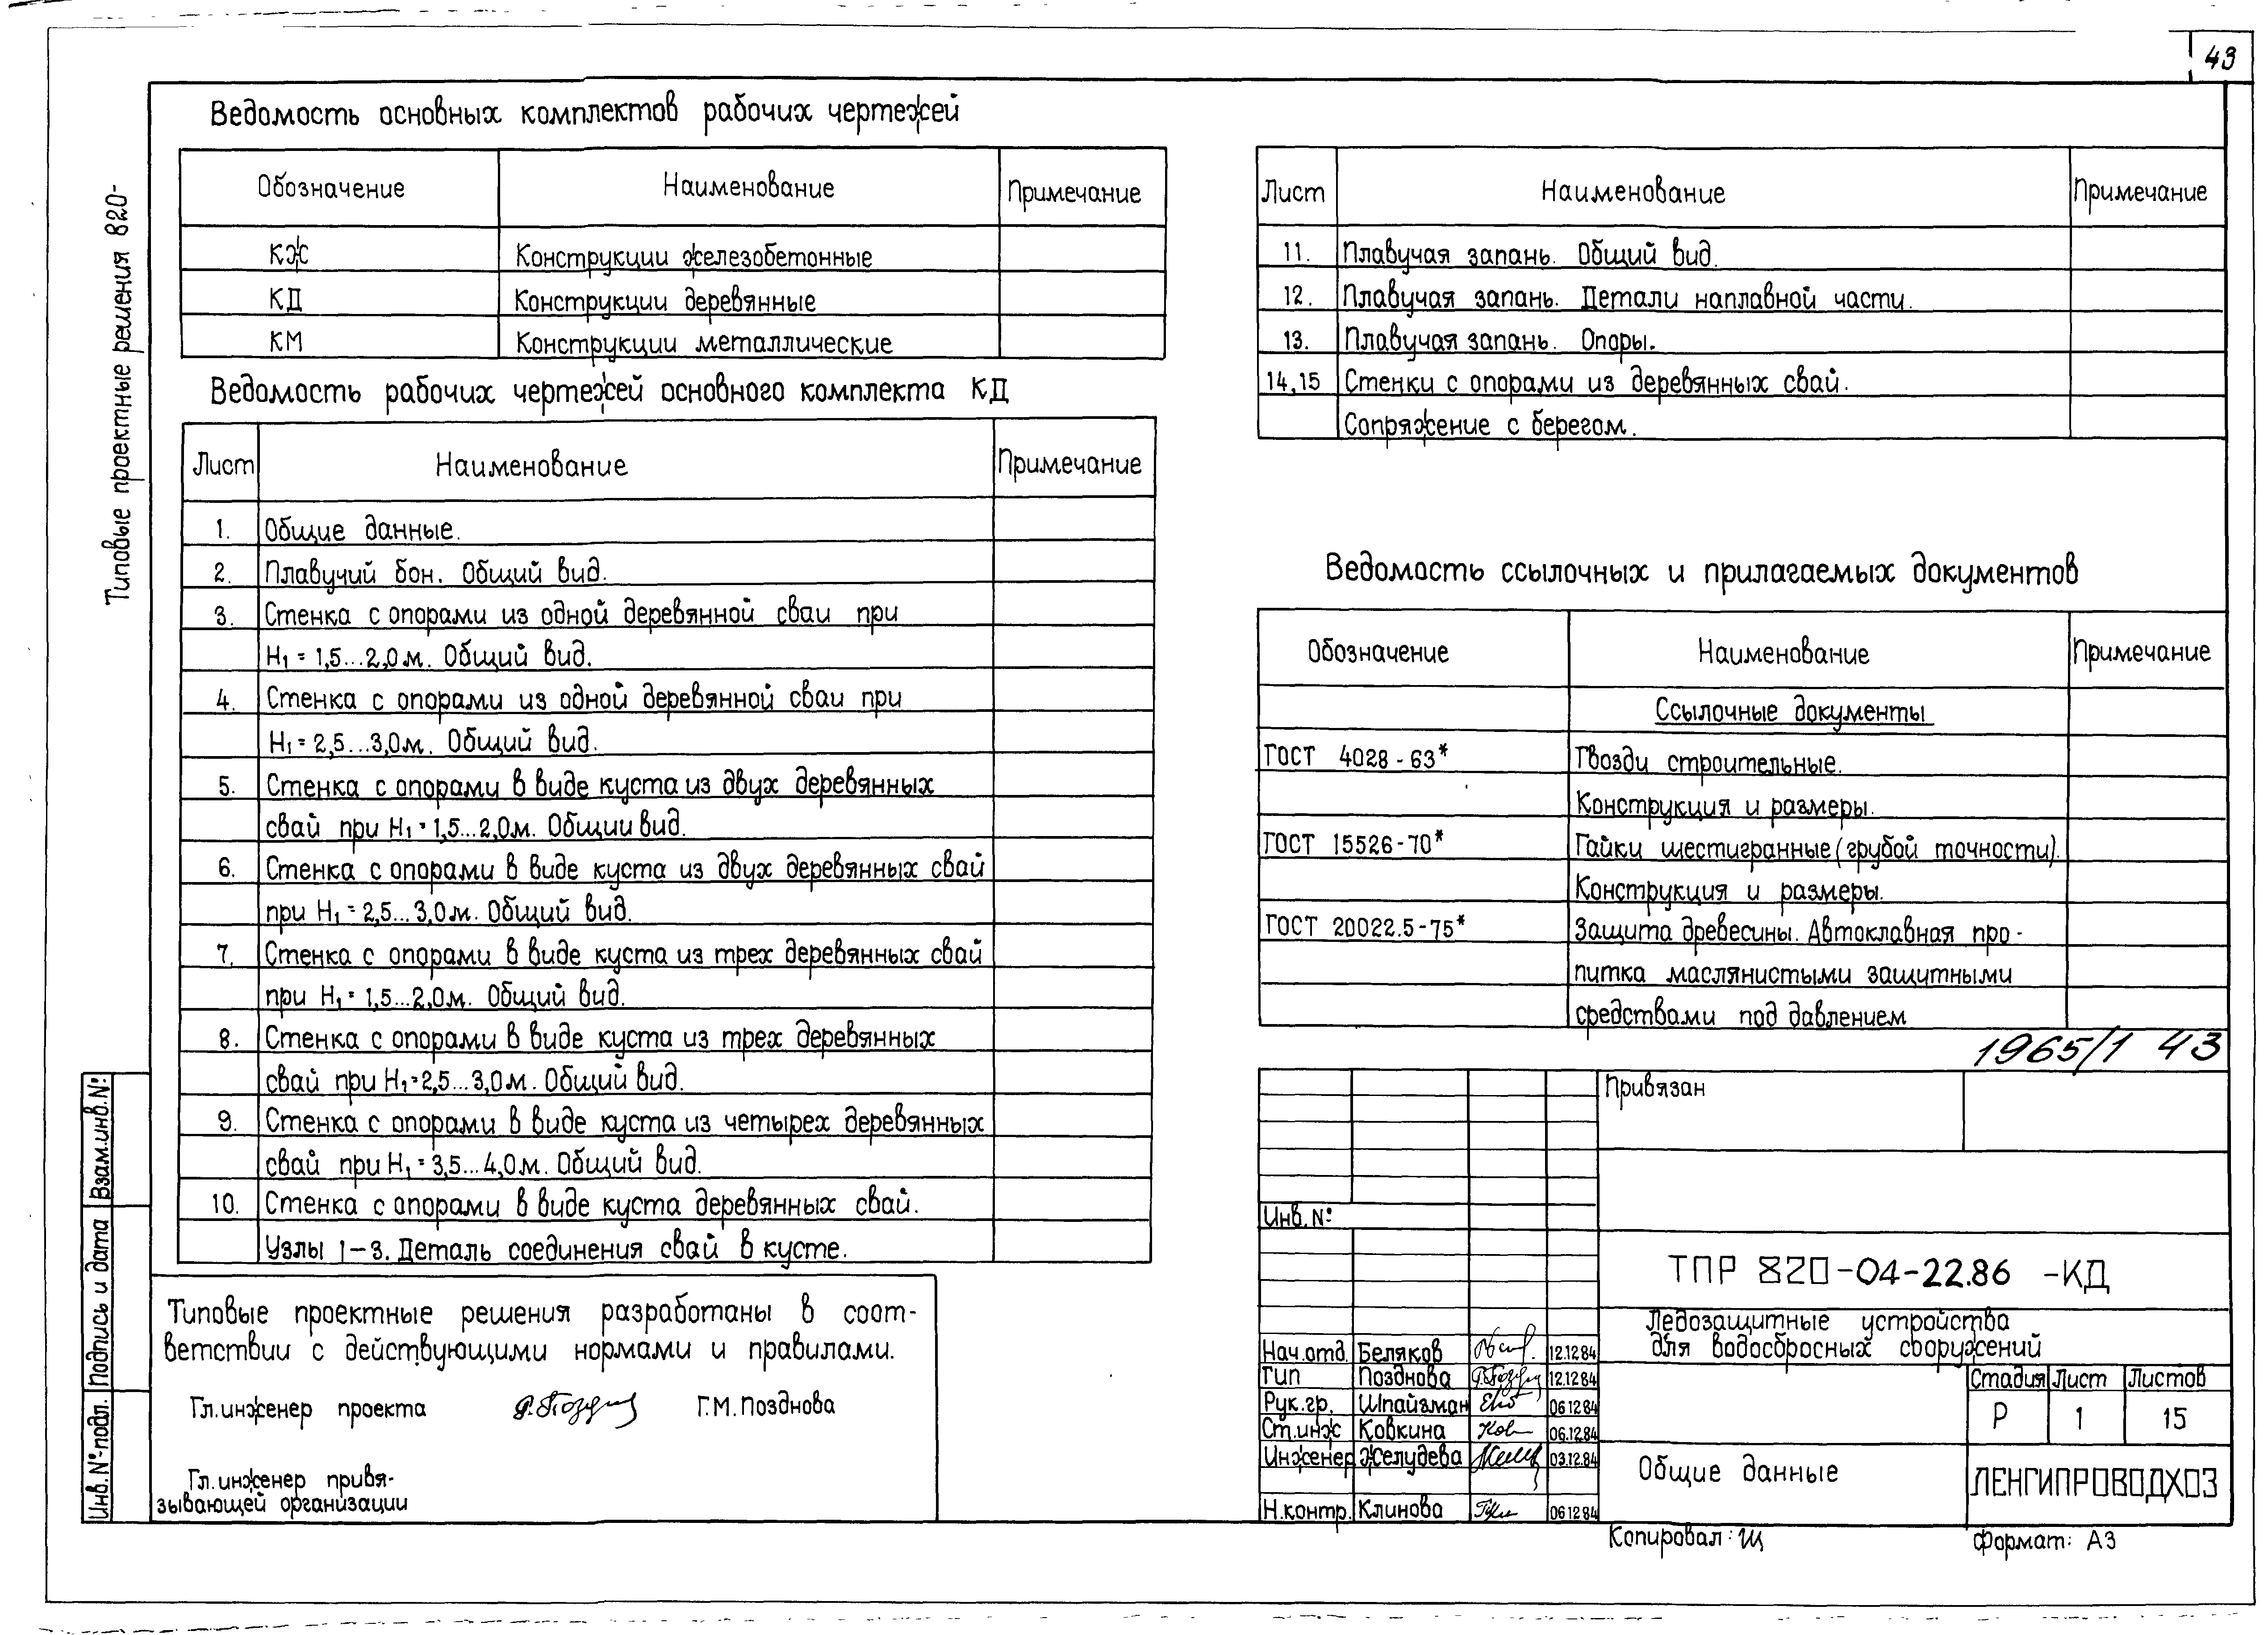 43
Типовые проектные решения 820-
Ведомость основных комплектов рабочих чертежей
Обозначение Наименование Примечание
КЖ Конструкции железобетонные
КД Конструкции деревянные
КМ Конструкции металлические
Ведомость рабочих чертежей основного комплекта КД
Лист Наименование Примечание
1. Общие данные.
2. Плавучий бон. Общий вид.
3. Стенка с опорами из одной деревянной сваи при
H₁ = 1,5...2,0 м. Общий вид.
4. Стенка с опорами из одной деревянной сваи при
H₁ = 2,5...3,0 м. Общий вид.
5. Стенка с опорами в виде куста из двух деревянных
свай при H₁ = 1,5...2,0 м. Общии вид.
6. Стенка с опорами в виде куста из двух деревянных свай
при H₁ = 2,5...3,0 м. Общий вид.
7. Стенка с опорами в виде куста из трех деревянных свай
при H₁ = 1,5...2,0 м. Общий вид.
8. Стенка с опорами в виде куста из трех деревянных
свай при H₁ = 2,5...3,0 м. Общий вид.
9. Стенка с опорами в виде куста из четырех деревянных
свай при H₁ = 3,5...4,0 м. Общий вид.
10. Стенка с опорами в виде куста деревянных свай.
Узлы 1-3. Деталь соединения свай в кусте.
Типовые проектные решения разработаны в соот-
ветствии с действующими нормами и правилами.
Гл. инженер проекта Г.М. Позднова
Гл. инженер привя-
зывающей организации
Взам. инв. №
Подпись и дата
Инв. № подл.
Лист Наименование Примечание
11. Плавучая запань. Общий вид.
12. Плавучая запань. Детали наплавной части.
13. Плавучая запань. Опоры.
14,15 Стенки с опорами из деревянных свай.
Сопряжение с берегом.
Ведомость ссылочных и прилагаемых документов
Обозначение Наименование Примечание
Ссылочные документы
ГОСТ 4028-63* Гвозди строительные.
Конструкция и размеры.
ГОСТ 15526-70* Гайки шестигранные (грубой точности).
Конструкция и размеры.
ГОСТ 20022.5-75* Защита древесины. Автоклавная про-
питка маслянистыми защитными
средствами под давлением
1965/1 43
Привязан
Инв. №
ТПР 820-04-22.86 -КД
Ледозащитные устройства
для водосбросных сооружений
Нач. отд. Беляков 12.12.84
Гип Позднова 12.12.84
Рук. гр. Шпайзман 06.12.84
Ст. инж Ковкина 06.12.84
Инженер Желудева 03.12.84
Н. контр. Клинова 06.12.84
Стадия Лист Листов
Р 1 15
Общие данные
ЛЕНГИПРОВОДХОЗ
Копировал: Щ
Формат: А3